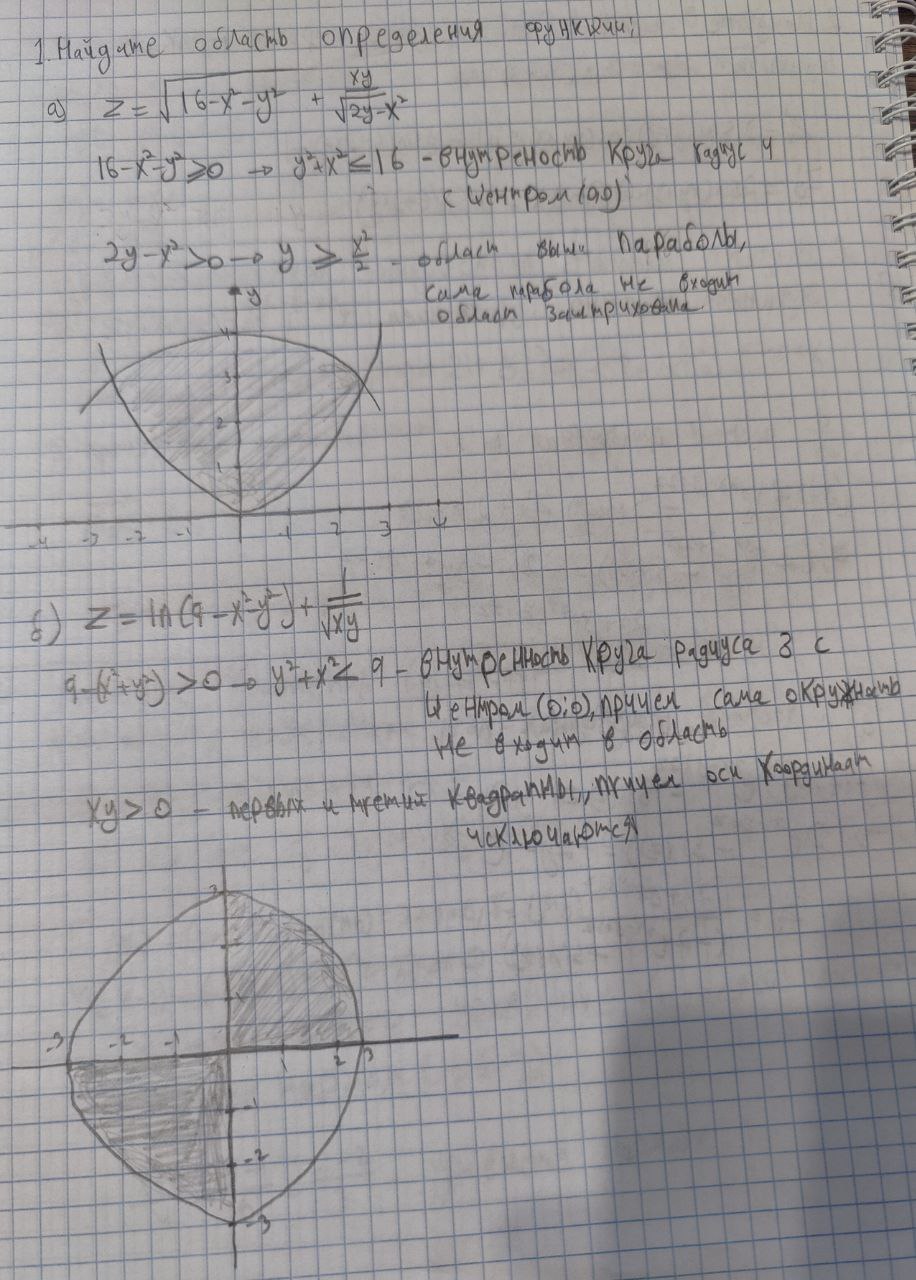 1. Найдите область определения функции:
а) z = √16-x²-y² + xy/√2y-x²
16-x²-y² ≥ 0 → y²+x² ≤ 16 - внутреность круга радиус 4
с центром (0,0)
2y-x² > 0 → y ≥ x²/2 - област выше параболы,
сама парабола не входит
област заштрихована.
y
4
3
2
1
-4 -3 -2 -1 1 2 3 4
б) z = ln(9-x²-y²) + 1/√xy
9-(x²+y²) > 0 → y²+x² < 9 - внутренность круга радиуса 3 с
центром (0;0), причем сама окружность
не входит в область
xy > 0 - первых и третий квадранты, причем оси координат
исключаются
3
1
-3 -2 -1 1 2 3
-1
-2
-3